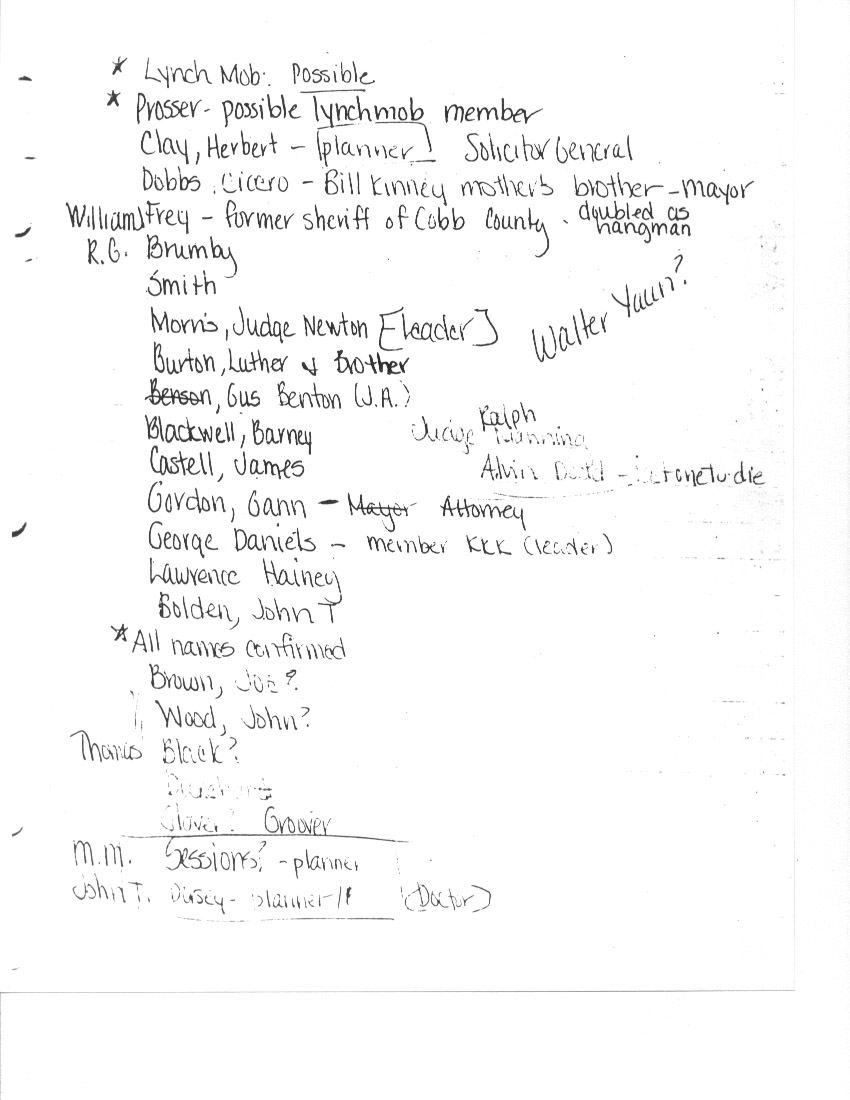 * Lynch Mob: Possible
* Prosser - possible lynchmob member
Clay, Herbert - [planner] Solicitor General
Dobbs, Cicero - Bill Kinney mother's brother - mayor
William J Frey - former sheriff of Cobb County. doubled as hangman
R.G. Brumby
Smith
Morris, Judge Newton [leader]
Walter Yaun?
Burton, Luther & brother
Benson, Gus Benton (J.A.)
Blackwell, Barney
Ralph
Judge
Castell, James
Alvin
Gordon, Gann - Mayor Attorney
George Daniels - member KKK (leader)
Lawrence Hainey
Bolden, John T
* All names confirmed
Brown, Joe?
Wood, John?
Thomas Black?
Glover? Groover
M.M. Sessions? - planner
John T. Dorsey - planner (Doctor)